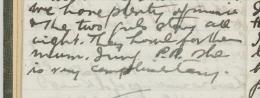 we have plenty of music
& the two girls stay all
night. They howl for their
mum. Irving P.R. she
is very complimentary.